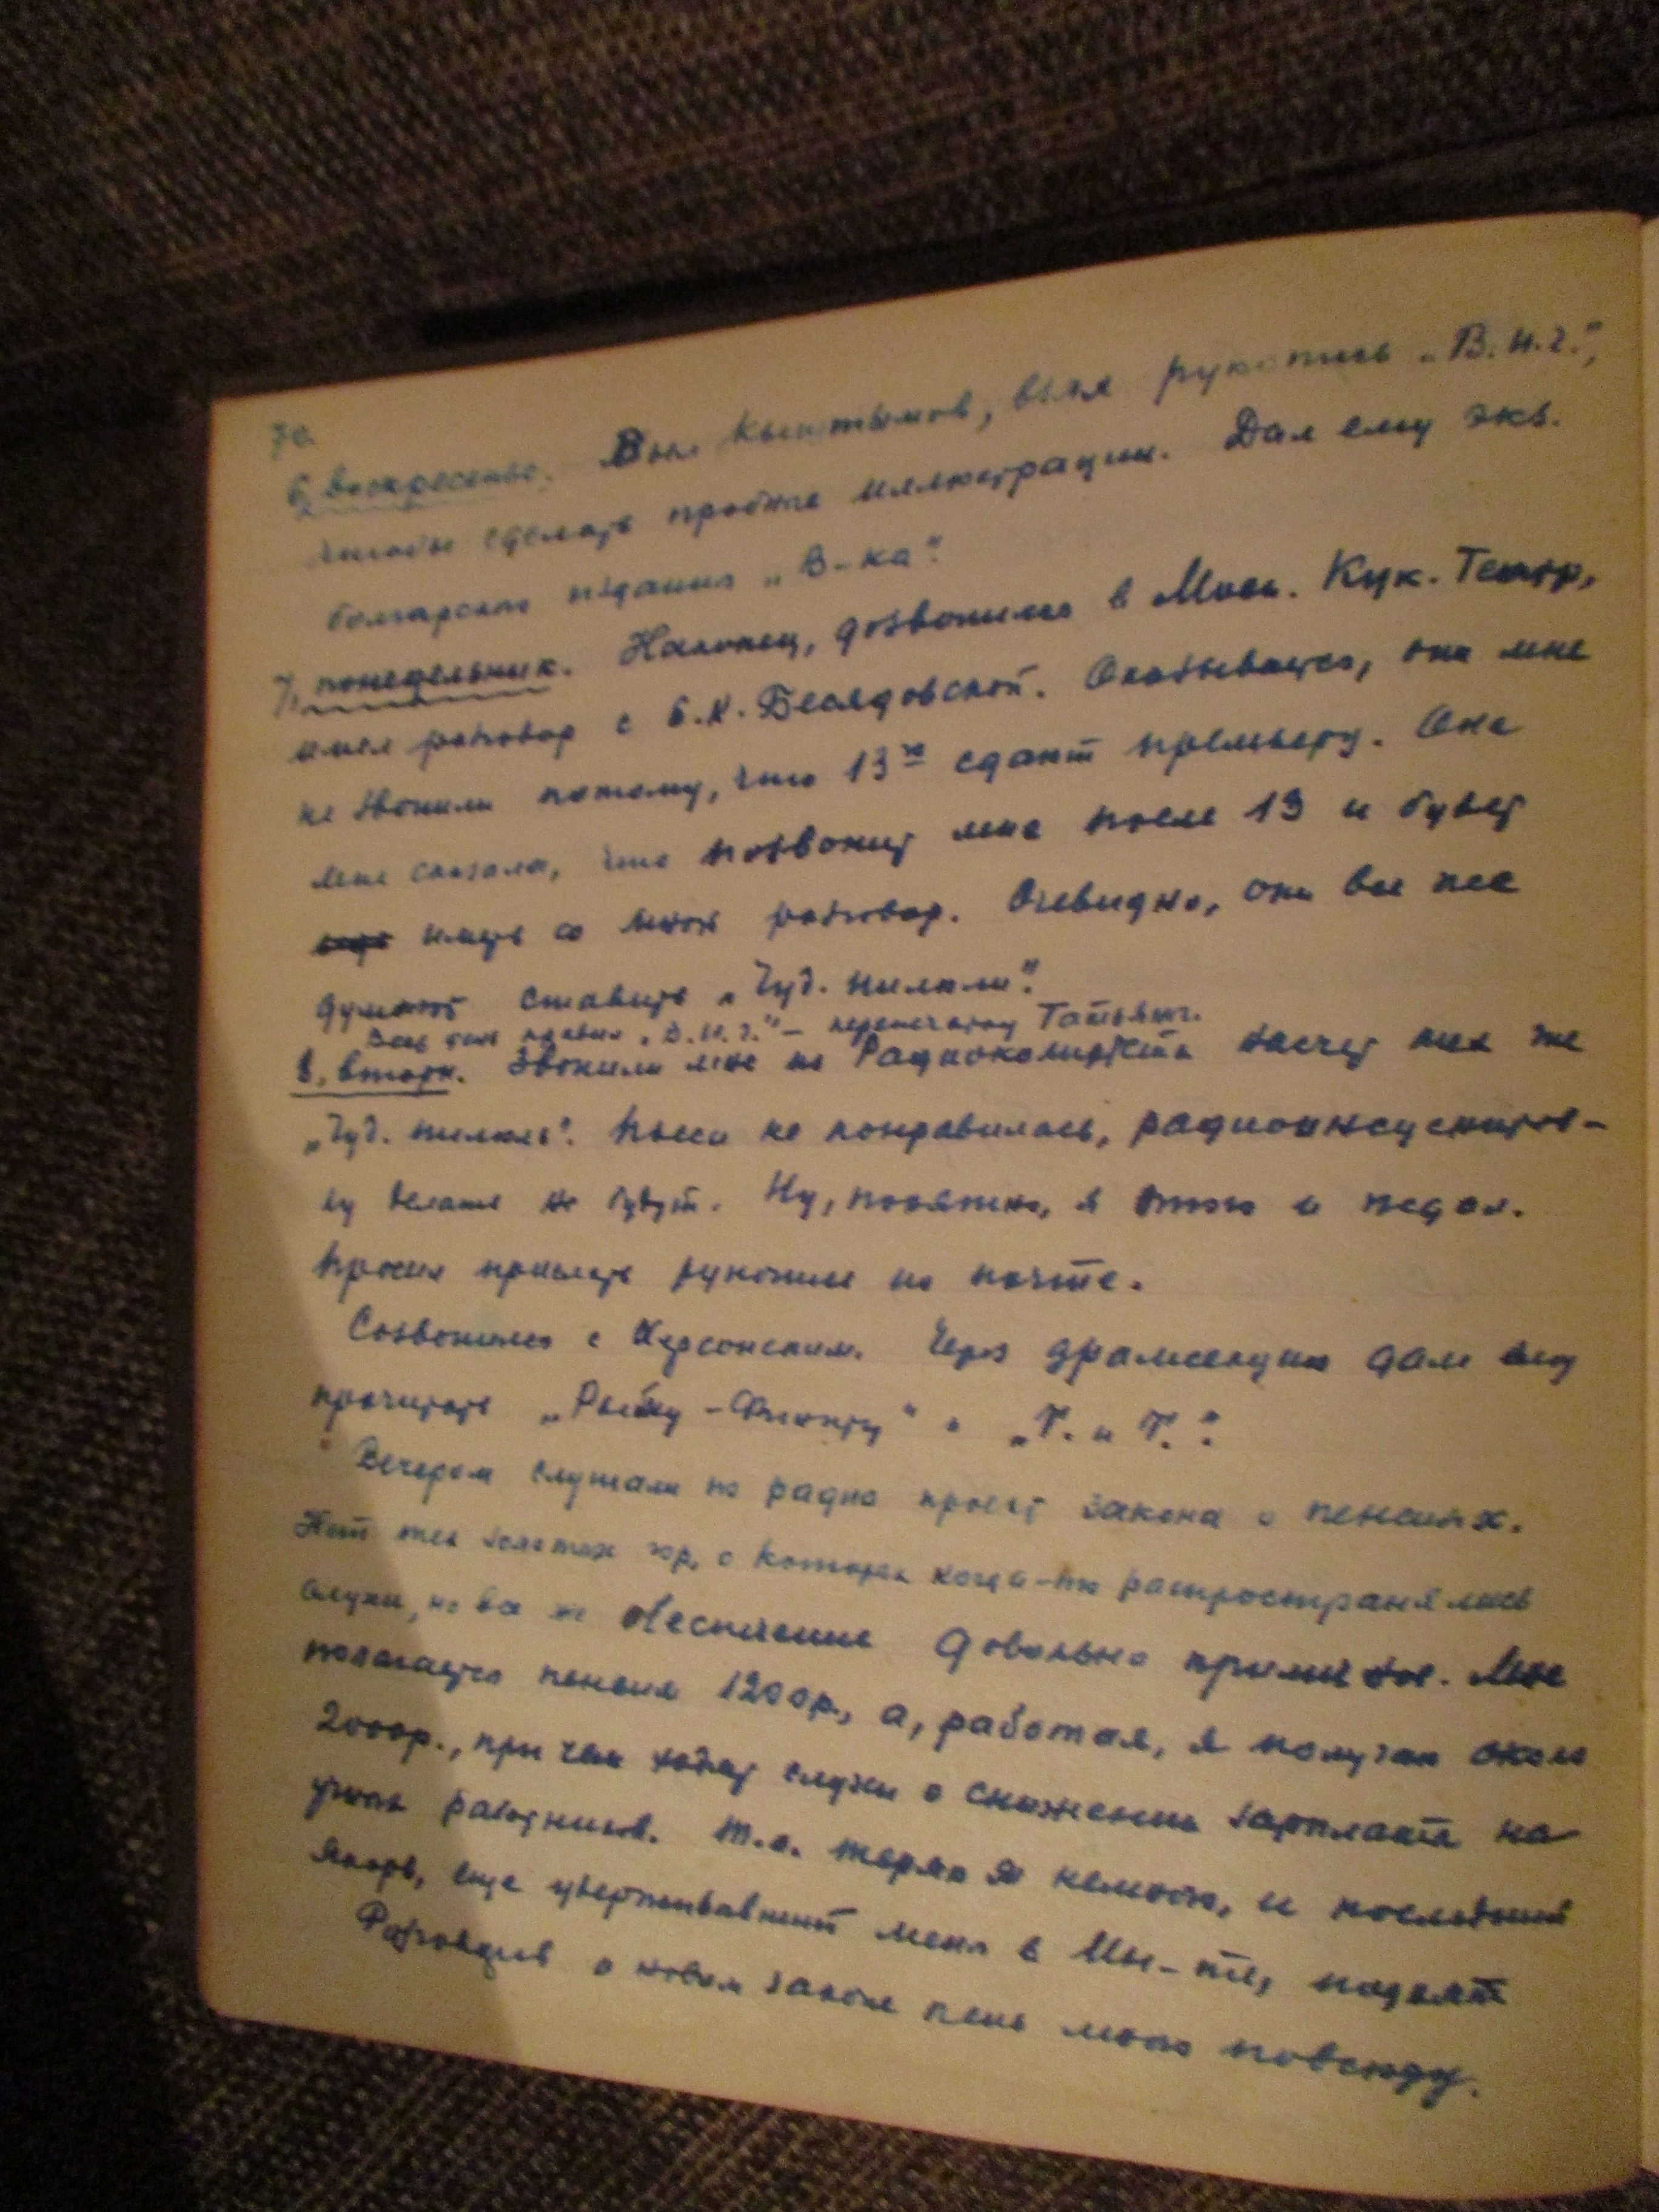 70.
6, воскресенье. Был Кыштымов, взял рукопись „В.Н.Г.“,
чтобы сделать пробные иллюстрации. Дал ему экз.
болгарского издания „В-ка“.
7, понедельник. Наконец, дозвонился в Моск. Кук. Театр,
имел разговор с Беседовской. Оказывается, они мне
не звонили потому, что 13го сдают премьеру. Она
мне сказала, что позвонит мне после 13 и будет
иметь со мной разговор. Очевидно, они все же
думают ставить „Чуд. пилюли“.
Весь день правил – перепечатку Татьяны.
8, вторн. Звонили мне из Радиокомитета насчет тех же
„Чуд. пилюль“. Пьеса не понравилась, радиоинсцениров-
ку делать не будут. Ну, понятно, я этого и ждал.
Просил прислать рукопись по почте.
Созвонился с Херсонским. Через драмсекцию дал ему
прочитать „Рыбку-Финиту“ и „Т. и Т.“.
Вечером слушали по радио проект закона о пенсиях.
Нет тех золотых гор, о которых когда-то распространялись
слухи, но все же обеспечение довольно приличное. Мне
полагается пенсия 1200р., а, работая, я получаю около
2000р., при чем ходят слухи о снижении зарплаты на-
учных работников. Т.о. теряю я немного, и последний
якорь, еще удерживавший меня в Ин-те, поднят
Разговоров о новом законе пенс. много повсюду.